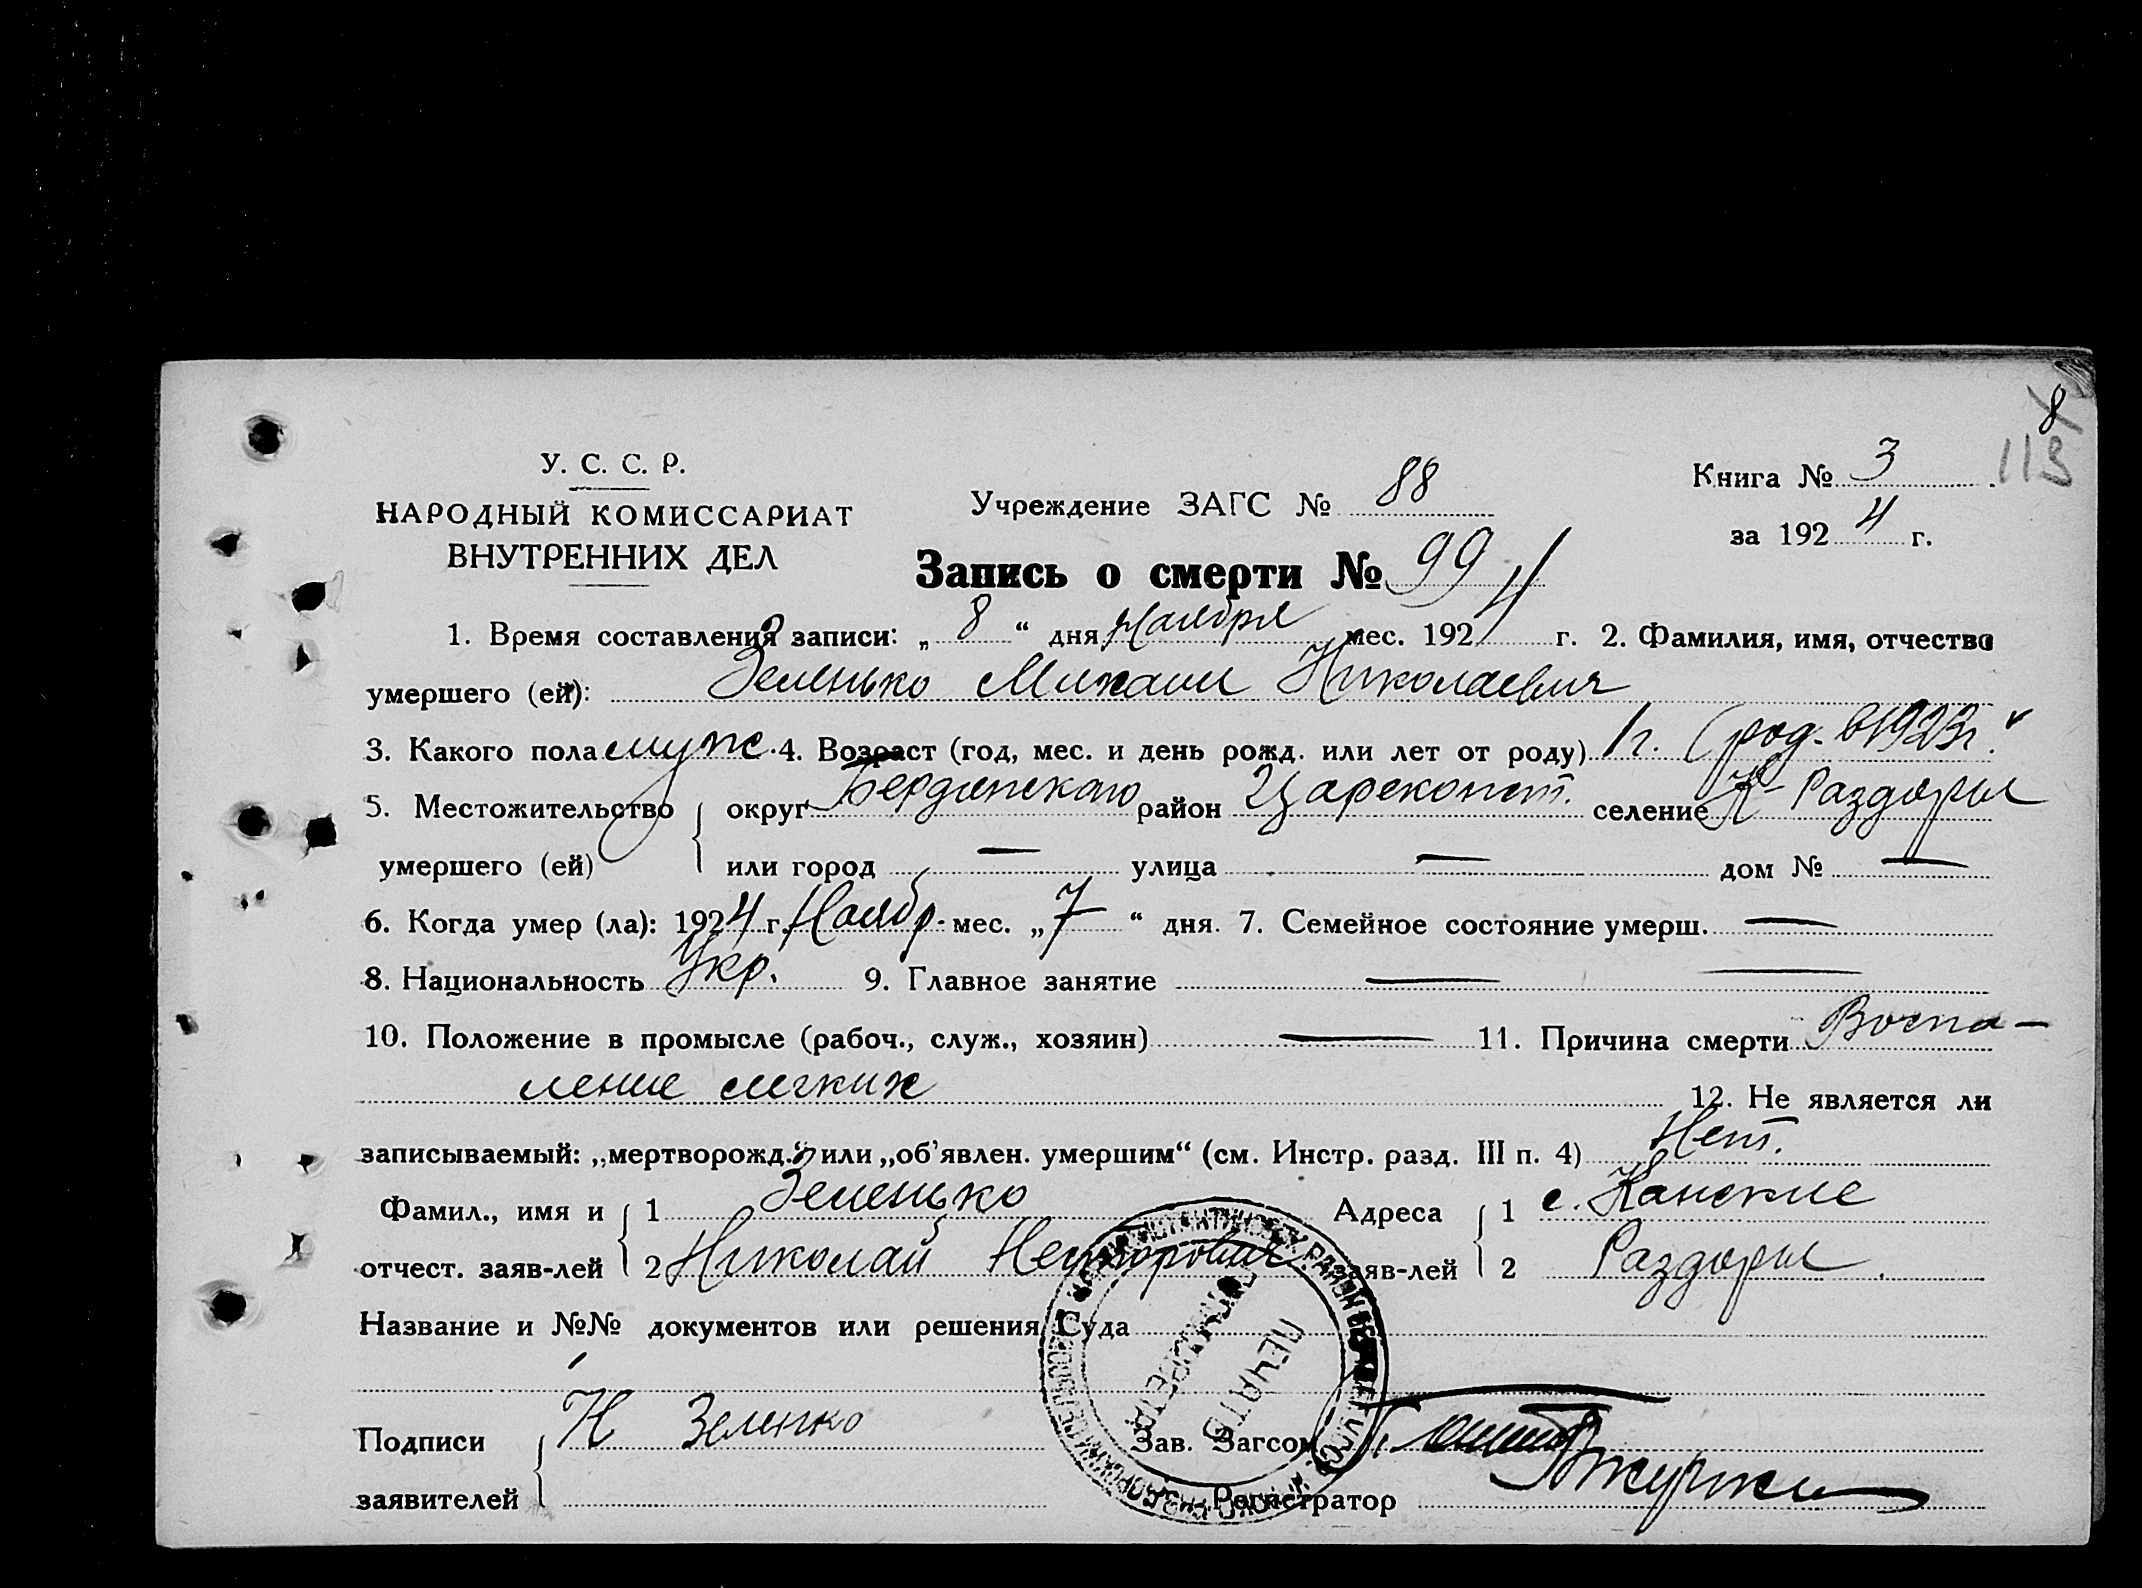 8
113
У. С. С. Р.
НАРОДНЫЙ КОМИССАРИАТ
ВНУТРЕННИХ ДЕЛ
Учреждение ЗАГС № 88
Книга № 3
за 1924 г.
Запись о смерти № 99
1. Время составления записи: „8“ дня Ноября мес. 1924 г. 2. Фамилия, имя, отчество
умершего (ей): Зеленько Михаил Николаевич
3. Какого пола муж. 4. Возраст (год, мес. и день рожд. или лет от роду) 1 г. (род. в 1923 г.
5. Местожительство округ Бердянского район Цареконст. селение К-Раздоры
умершего (ей) или город — улица — дом № —
6. Когда умер (ла): 1924 г. Ноябр. мес. „7“ дня. 7. Семейное состояние умерш. —
8. Национальность Укр. 9. Главное занятие —
10. Положение в промысле (рабоч., служ., хозяин) — 11. Причина смерти Воспа-
ление легких 12. Не является ли
записываемый: „мертворожд.“ или „об’явлен. умершим“ (см. Инстр. разд. III п. 4) Нет.
Фамил., имя и 1 Зеленько Адреса 1 с. Канские
отчест. заяв-лей 2 Николай Несторович заяв-лей 2 Раздоры
Название и №№ документов или решения Суда
Подписи Н Зеленко Зав. Загсом
заявителей Регистратор
ПЕЧАТЬ